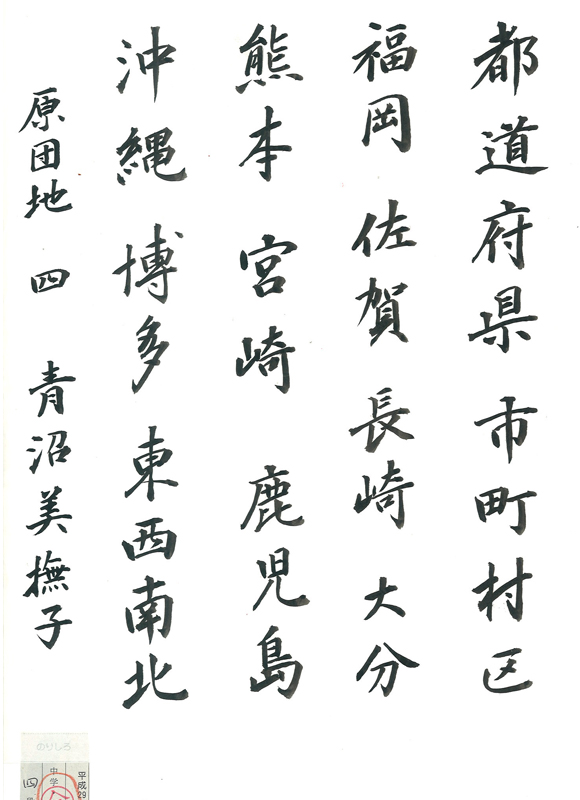 都道府県 市町村区
福岡 佐賀 長崎 大分
熊本 宮崎 鹿児島
沖縄 博多 東西南北
原団地 四 青沼美撫子
のりしろ
平成29
中学
四